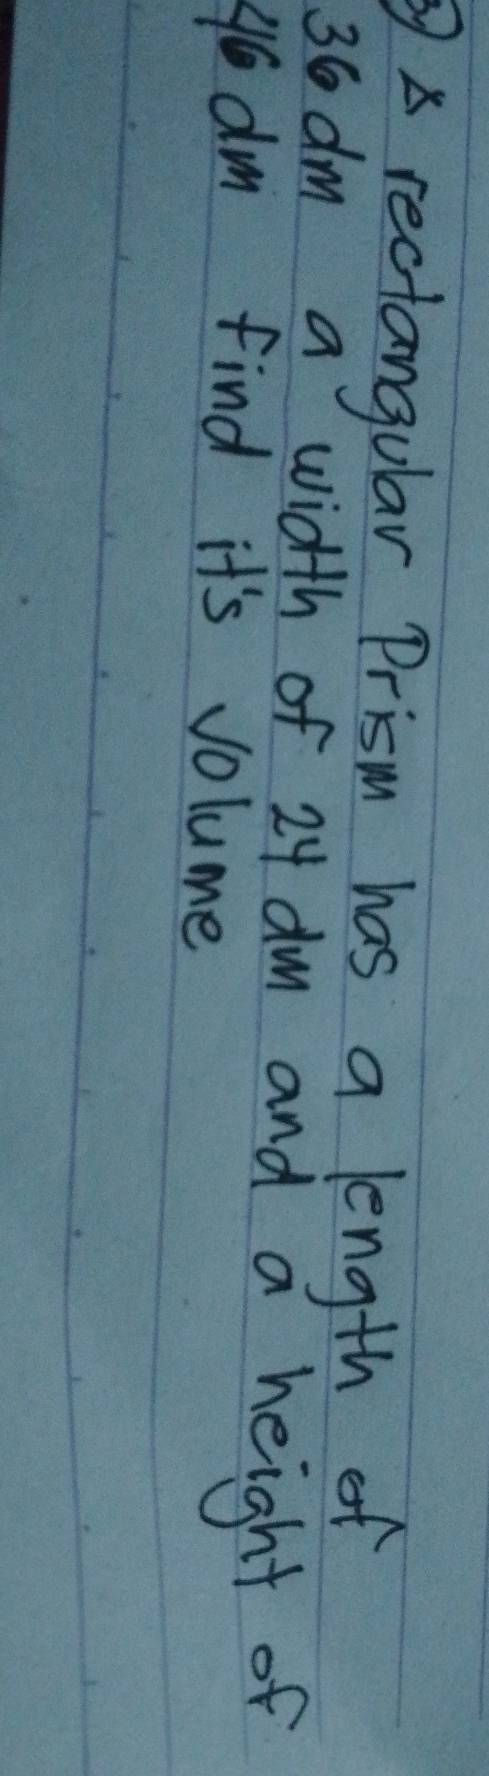 3) A rectangular Prism has a length of
36 dm a width of 24 dm and a height of
46 dm find it's volume